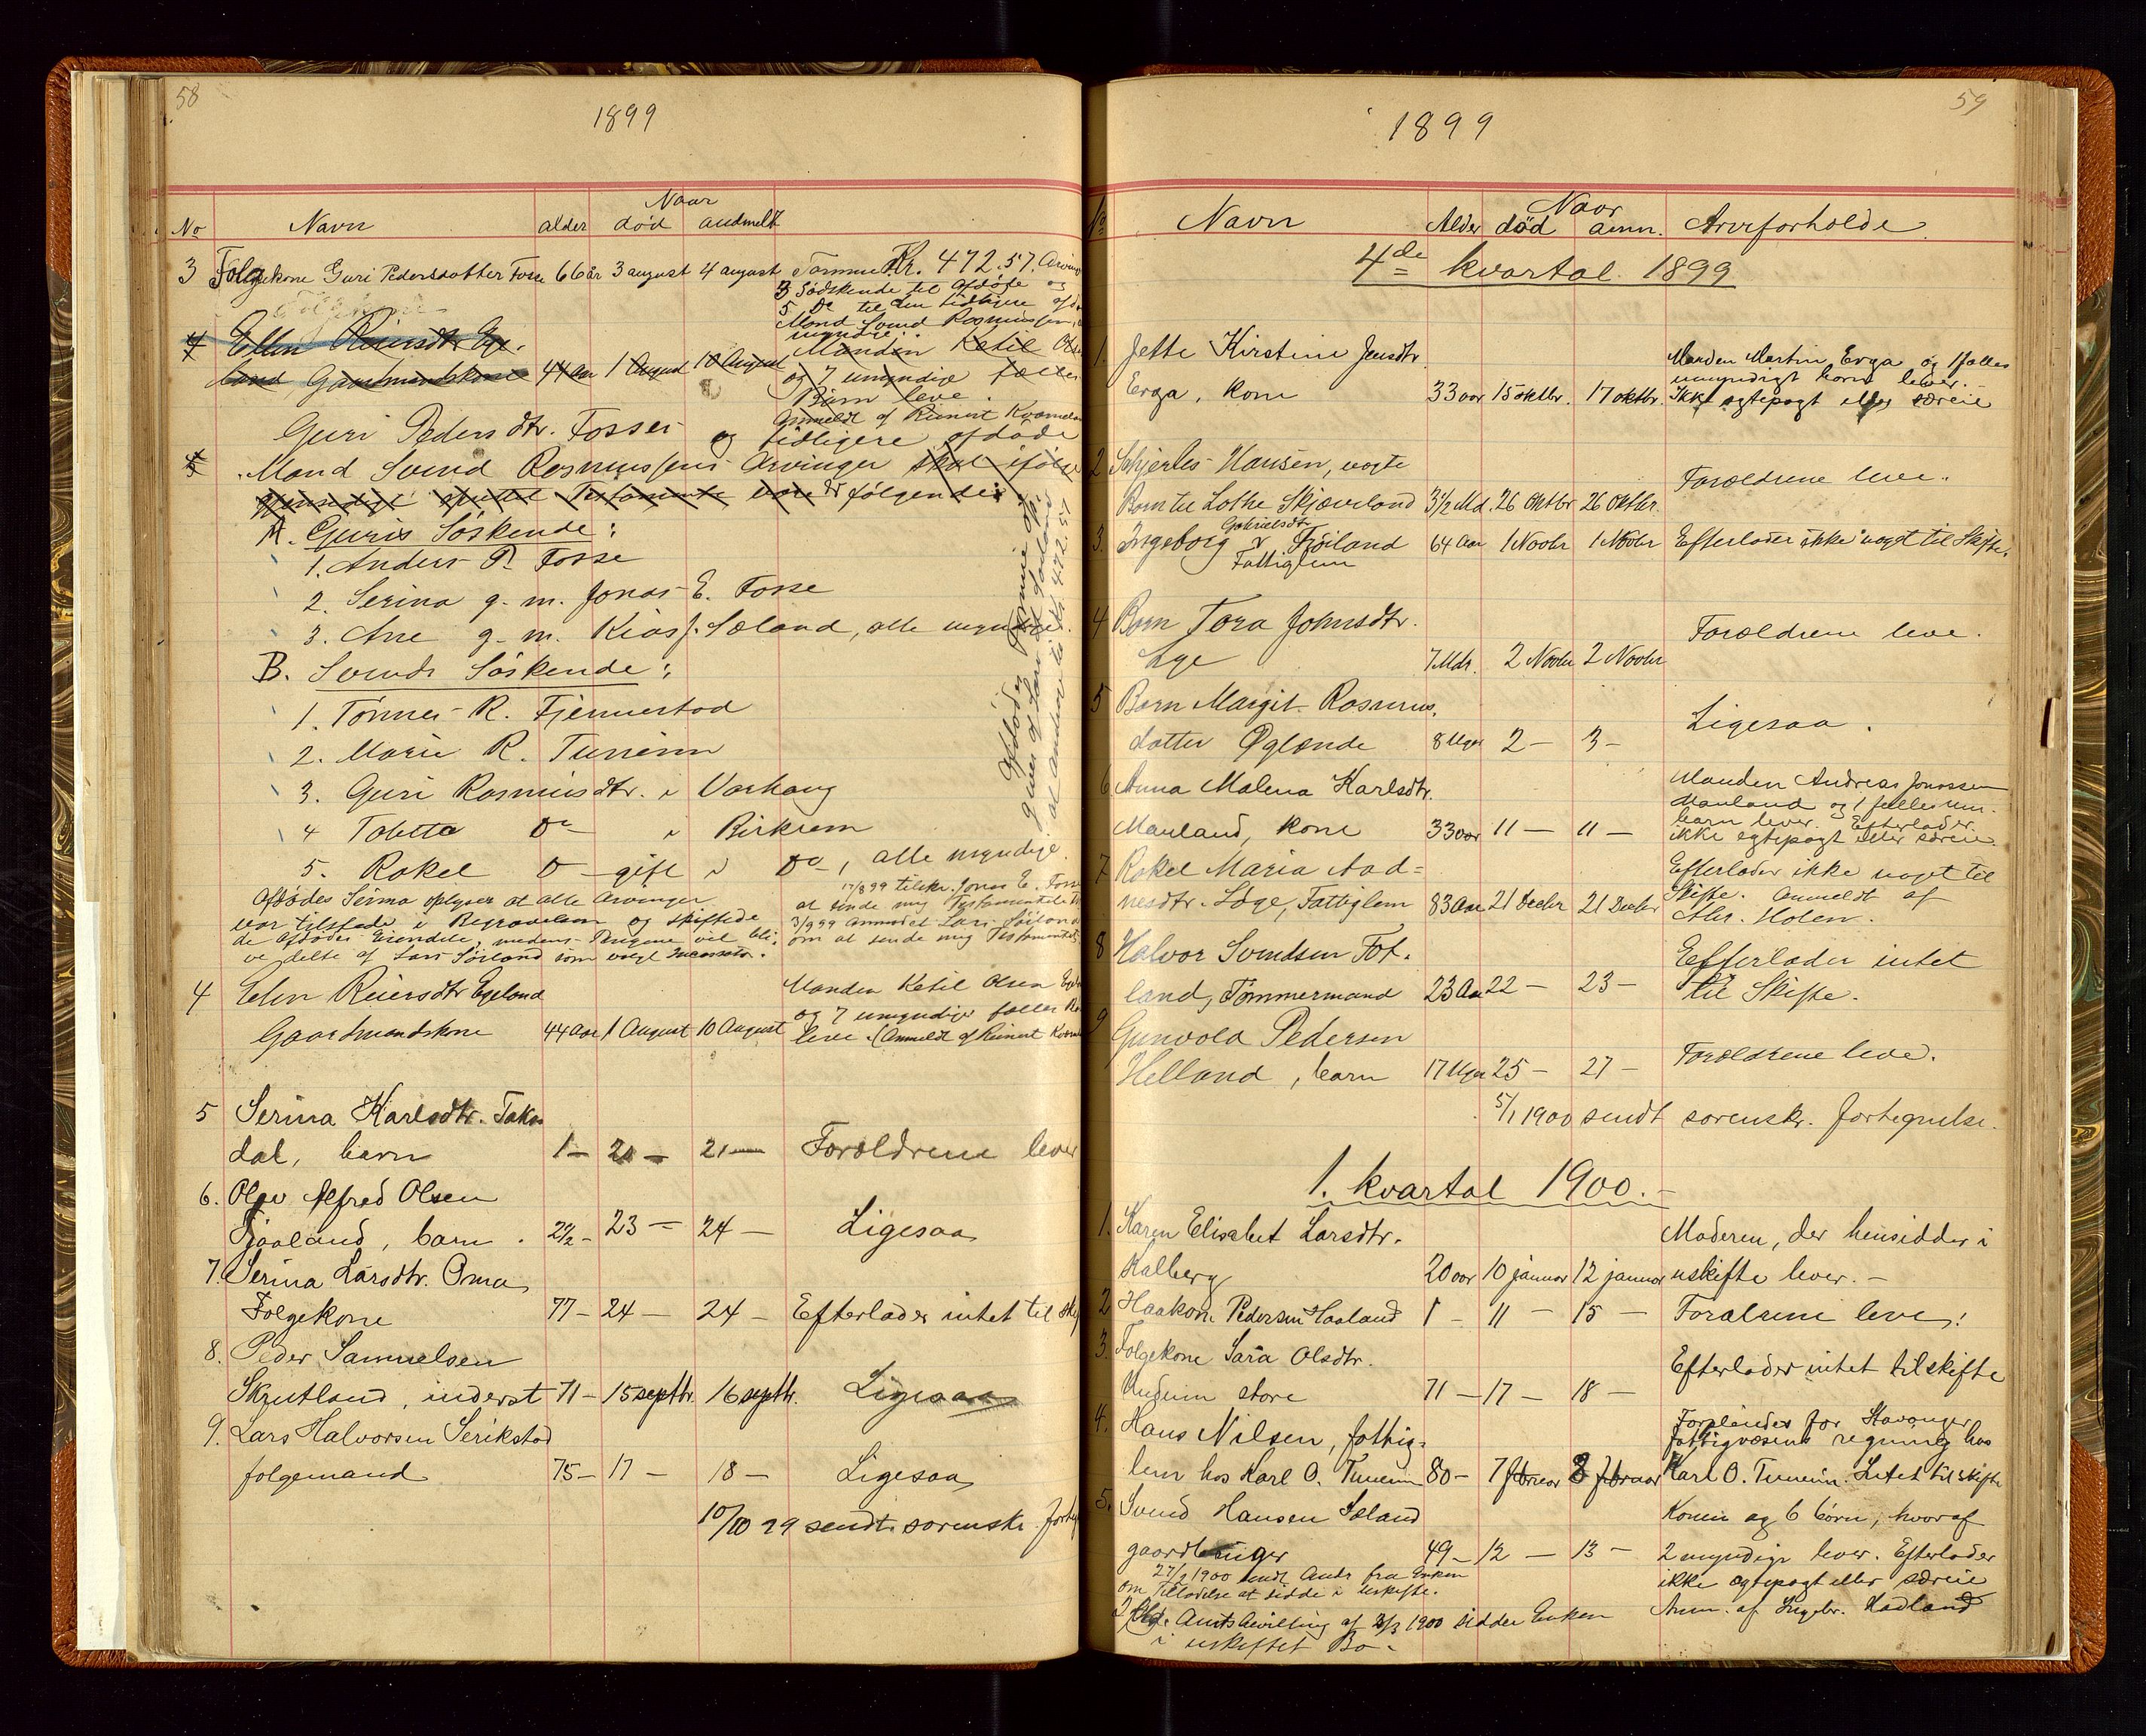 58
1899
No Navn alder Naar død andmeldt
3 Følgekone Guri Pedersdatter Fosse 66 år 3 august 4 august Formue Kr. 472.57. Arvin
3 Sødskende til Afdøde og
5 Do til den tidligere afdø
Mand Svend Rasmussen,
myndige.
4 Ellen Reiersdtr. Ege-
land Gaardmandskone 44 Aar 1 August 10 August Manden Ketil Ols
og 7 umyndige fælles
Børn leve.
Anmeldt af Reinert Kvameland
Guri Pedersdtr. Fosses og tidligere afdøde
Mand Svend Rasmussens Arvinger skal ifølge
gjensidigt Testamente være er følgende:
A. Guris Søskende:
1. Anders P. Fosse
2. Serina g. m. Jonas E. Fosse
3. Ane g. m. Kias J. Sæland, alle myndige.
B. Svends Søskende:
1. Tønnes R. Fjermestad
2. Marie R. Tunheim
3. Guri Rasmusdtr. i Varhaug
4 Tobitta Do i Birkrem
5. Rakel Do gift i Do, alle myndige.
Afdødes Serina oplyser at alle Arvinger
var tilstede i Begravelsen og skiftede
de afdødes Eiendele, medens Pengene vil bli-
ve delte af Lars Sørland som valgt Incassator.
17/8 99 tilskr. Jonas E. Fosse
at sende mig Testamentet
3/9 99 anmodet Lars Söiland
om at sende mig Testamentet
4 Elen Reiersdtr Egeland
Gaardmandskone 44 Aar 1 August 10 August Manden Ketil Olsen Ege
og 7 umyndige fælles Bø
leve. (Anmeldt af Reinert Kvame
5 Serina Karlsdtr. Taks-
dal, barn 1 – 20 – 21 – Forældrene lever
6. Olav Alfred Olsen
Tjaaland, barn. 2½ – 23 – 24 – Ligesaa
7. Serina Larsdtr. Oma
Folgekone 77 – 24 – 24 – Efterlader intet til skif
8. Peder Samuelsen
Skrutland, inderst 71 – 15 septbr. 16 septbr. Ligesaa
9. Lars Halvorsen Serikstad
folgemand 75 – 17 – 18 – Ligesaa
10/10 99 sendt sorenskr. forteg
59
1899
No Navn Alder Naar død anm. Arveforholde
4de kvartal 1899
1. Jette Kirstine Jensdtr.
Erga, kone 33 aar 15 oktbr. 17 oktbr. Manden Martin Erga og 1 fælles
umyndigt barn lever.
Ikke egtepagt eller særeie
2 Hansen, vogte
Barn til Lothe Skjæveland 3½ Md. 26 Oktbr 26 Oktbr. Forældrene leve.
3. Ingeborg Gabrielsdtr Frøiland
Fattiglem 64 Aar 1 Novbr 1 Novbr Efterlader ikke noget til Skifte.
4 Barn Tora Johnsdtr.
Lye 7 Mdr. 2 Novbr 2 Novbr Forældrene leve.
5 Barn Margit Rasmus-
datter Øglænde 8 Uger 2 – 3 – Ligesaa.
6 Anna Malena Karlsdtr.
Mauland, kone 33 aar 11 – 11 – Manden Andreas Jonassen
Mauland og 1 fælles um.
barn lever. Efterlader
ikke egtepagt eller særeie.
7 Rakel Maria Aad-
nesdtr. Lyge, Fattiglem 83 Aar 21 Decbr 21 Decbr Efterlader ikke noget til
Skifte. Anmeldt af
Abr. Holen.
8 Halvor Svendsen Fot-
land, Tømmermand 23 Aar 22 – 23 – Efterlader intet
til Skifte.
9 Gunvald Pedersen
Helland, barn 17 Uger 25 – 27 – Forældrene leve.
5/1 1900 sendt sorenskr. fortegnelse.
1. kvartal 1900.
1. Karen Elisabet Larsdtr.
Kalberg 20 aar 10 januar 12 januar Moderen, der hensidder i
uskifte lever.
2 Haakon Pedersen Haaland 1 – 11 – 15 – Forældrene leve!
3. Folgekone Sara Olsdtr.
Undeim store 71 – 17 – 18 – Efterlader intet til skifte
4. Hans Nilsen, fattig-
lem hos Karl O. Tuneim 80 – 7 februar 8 februar for Stavanger
fattigvæsens regning hos
Karl O. Tuneim. Intet til skifte
5. Svend Hansen Sæland
gaardbruger 49 – 12 – 13 – Konen og 6 børn, hvoraf
2 myndige lever. Efterlader
ikke egtepagt eller særeie
Anm. af Ingebr. Hadland
27/2 1900 sendt Ands. fra Enken
om Tilladelse at sidde i Uskifte.
Amtsbevilling af 3/3 1900 sidder Enken
i uskiftet Bo.